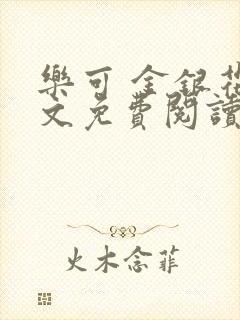 樂可 金銀花
文免費閱讀
火木念菲